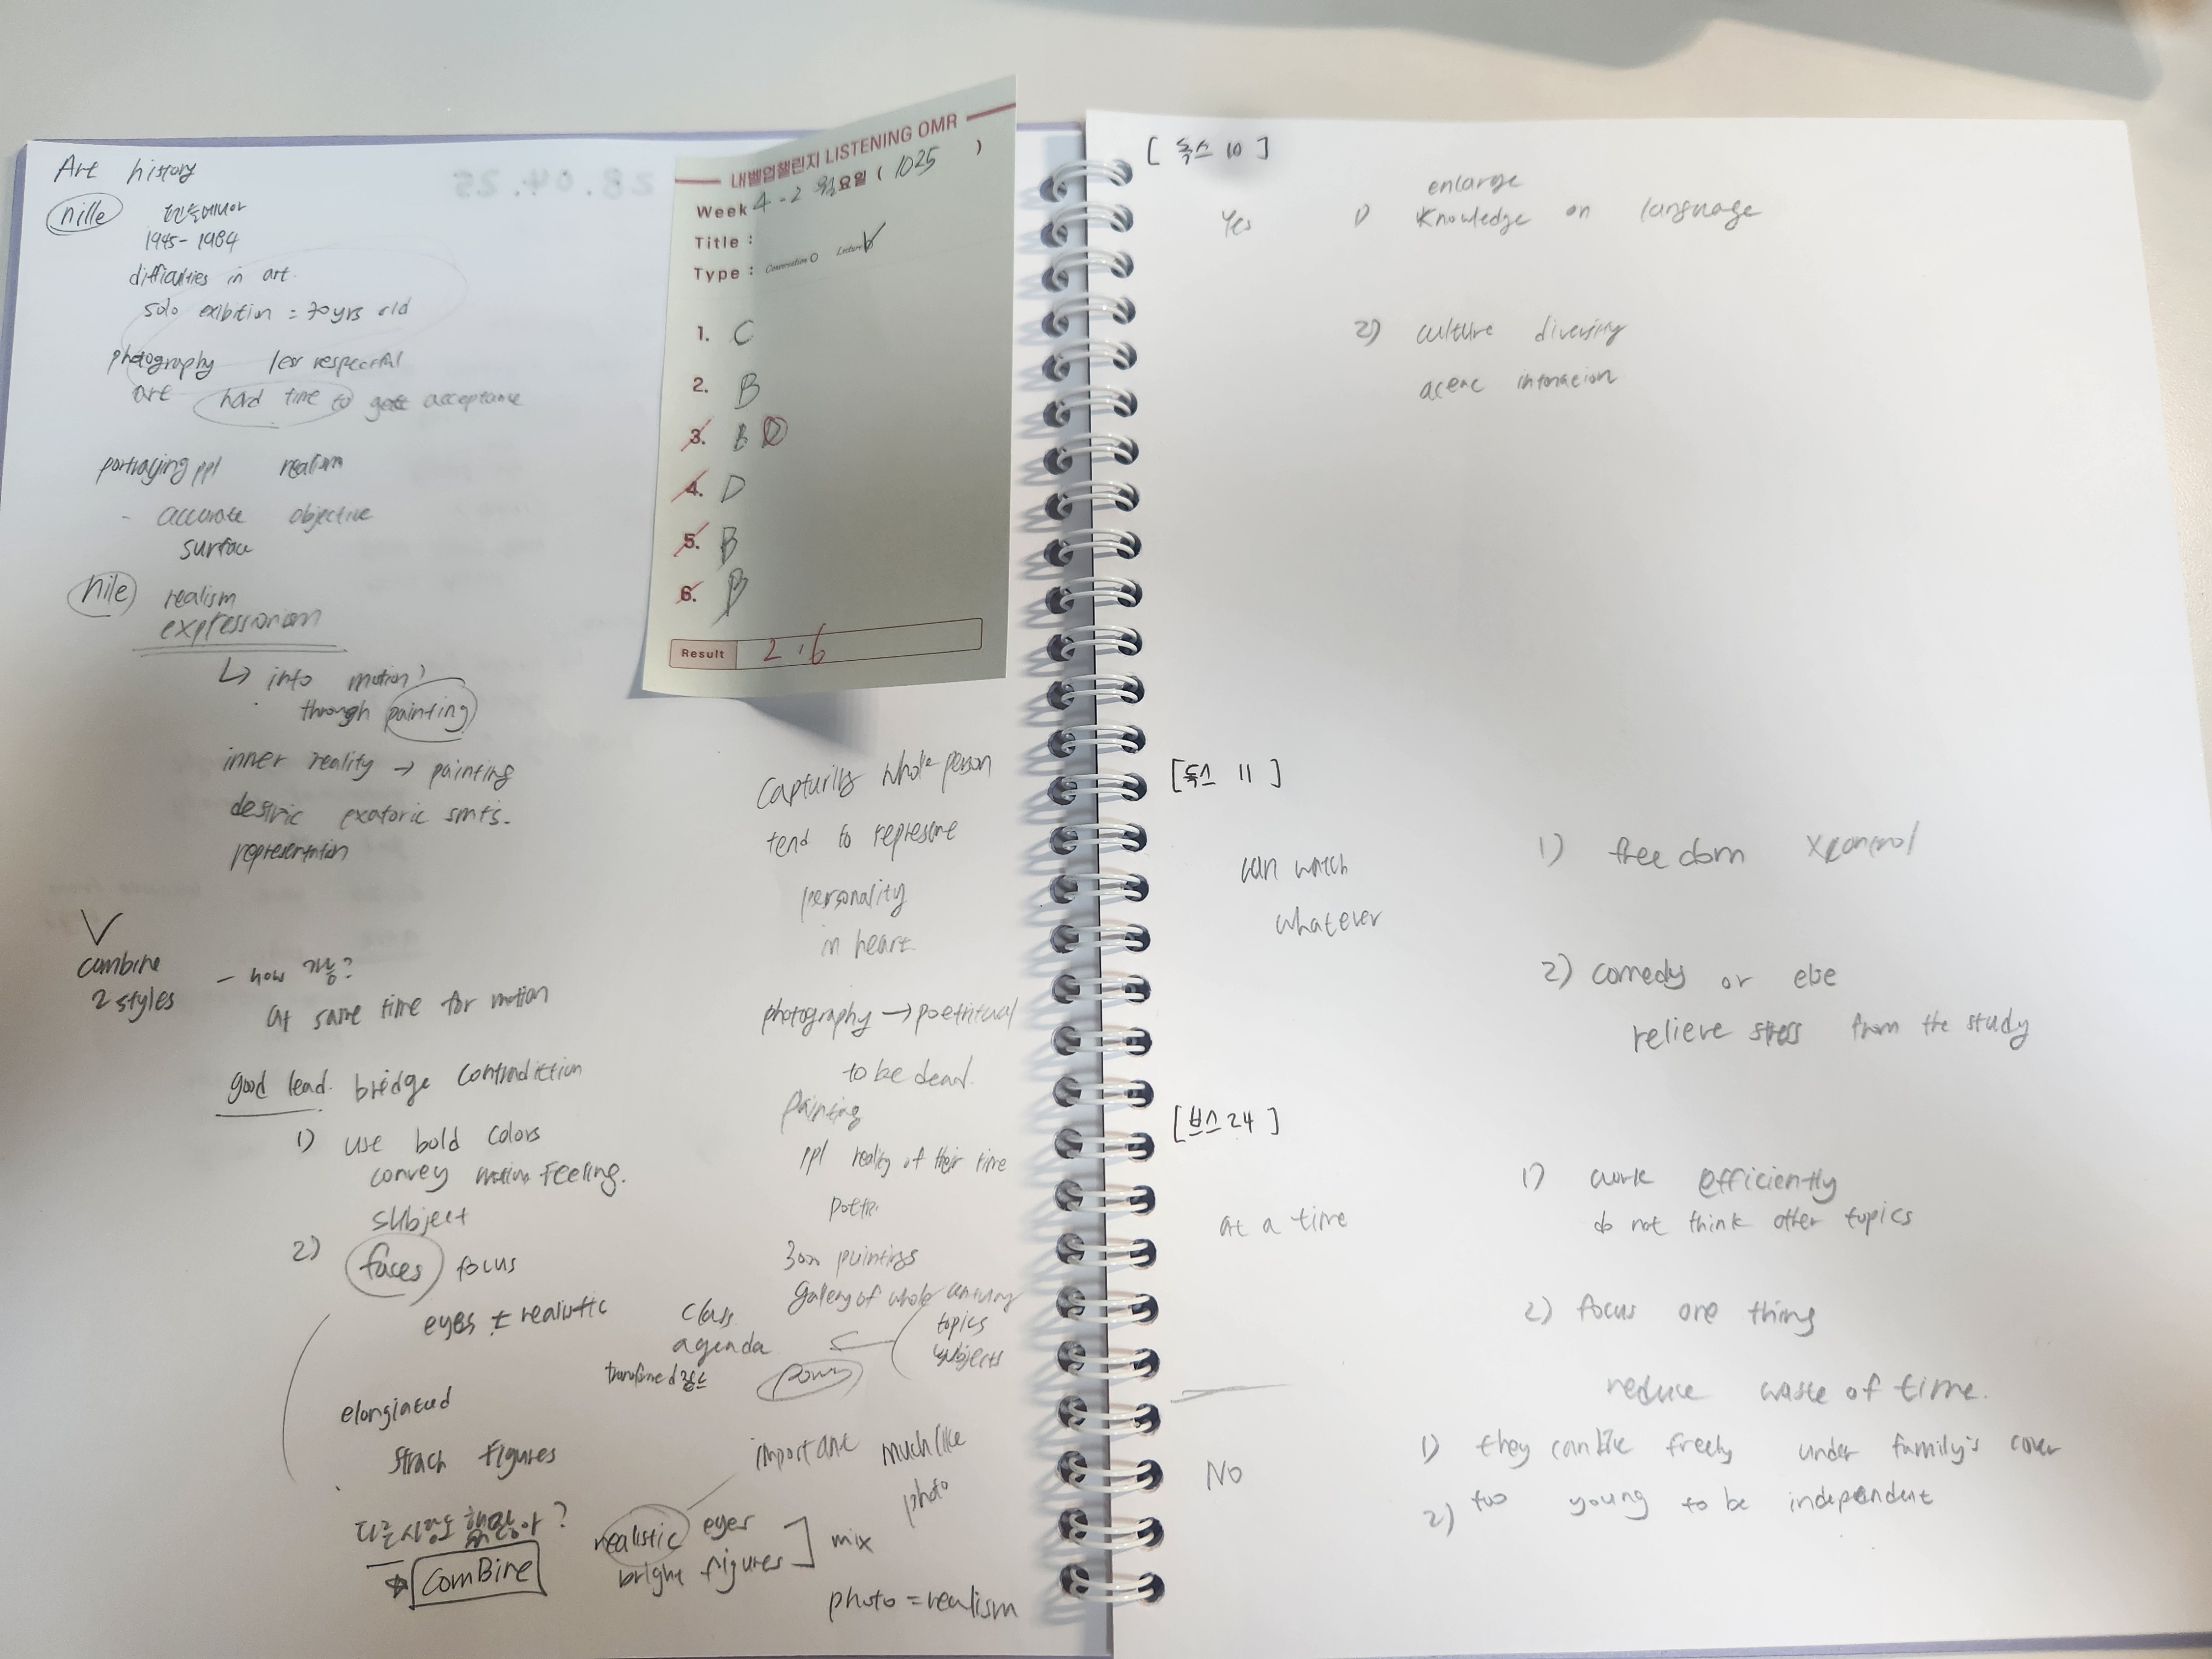 Art history
nille
1945-1984
difficulties in art.
solo exibition = 70yrs old
photography less respectful
art hard time to get acceptance
portraying ppl realism
- accurate objective
surface
nile realism
expressionism
↳ into motion?
through painting
inner reality → painting
exotoric smts.
representation
combine
2 styles
- how 가능?
at same time for motion
good lead. bridge contradiction
1) use bold colors
convey motion Feeling.
subject
2) faces focus
eyes ± realistic
elongiated
strach figures
다른사람도 했잖아?
→ comBine
capturing whole person
tend to represent
personality
in heart.
photography →
to be dead.
painting
ppl reality of their time
paintings
galery of whole century
topics
subjects
class
agenda
important much like
photo
realistic eyes
bright figures
mix
photo = realism
내벨업챌린지 LISTENING OMR
Week 4-2 월요일 ( 1025 )
Title :
Type : Conversation O Lecture ✓
1. C
2. B
3. B D
4. D
5. B
6. B
Result 2.6
[ 독스 10 ]
enlarge
Yes 1) Knowledge on language
2) culture diversity
[독스 11 ]
1) freedom X control
can watch
whatever
2) comedy or else
relieve stress from the study
[브스 24 ]
1) work efficiently
do not think other topics
at a time
2) focus one thing
reduce waste of time.
No 1) they can live freely under family's cover
2) too young to be independent